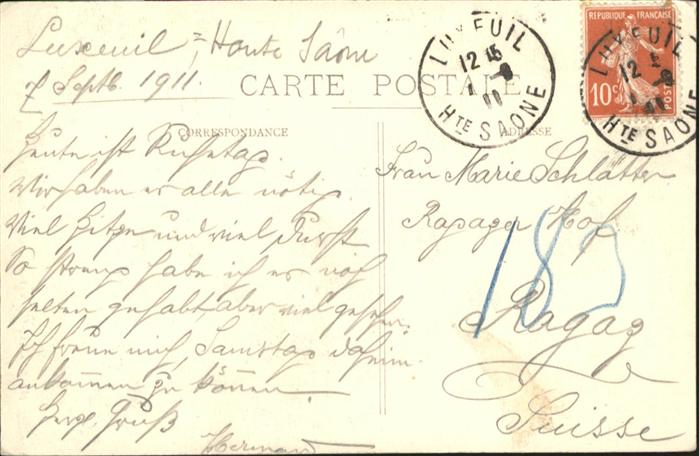 Luxeuil = Haute Saône
7 Septb. 1911.
CARTE POSTALE
CORRESPONDANCE
ADRESSE
Heute ist Ruhetag.
Wir haben es alle nötig.
Viel Hitze und viel Durst
So streng habe ich es noch
selten gehabt, aber viel gesehen.
Ich freue mich, Samstag daheim
ankommen zu können.
Herzl. Gruß
Hermann
Frau Marie Schlätter
Ragazer Hof
Ragaz
Suisse
183
LUXEUIL
12 15
HTE SAONE
REPUBLIQUE FRANÇAISE
10c
POSTES
LUXEUIL
12
HTE SAONE